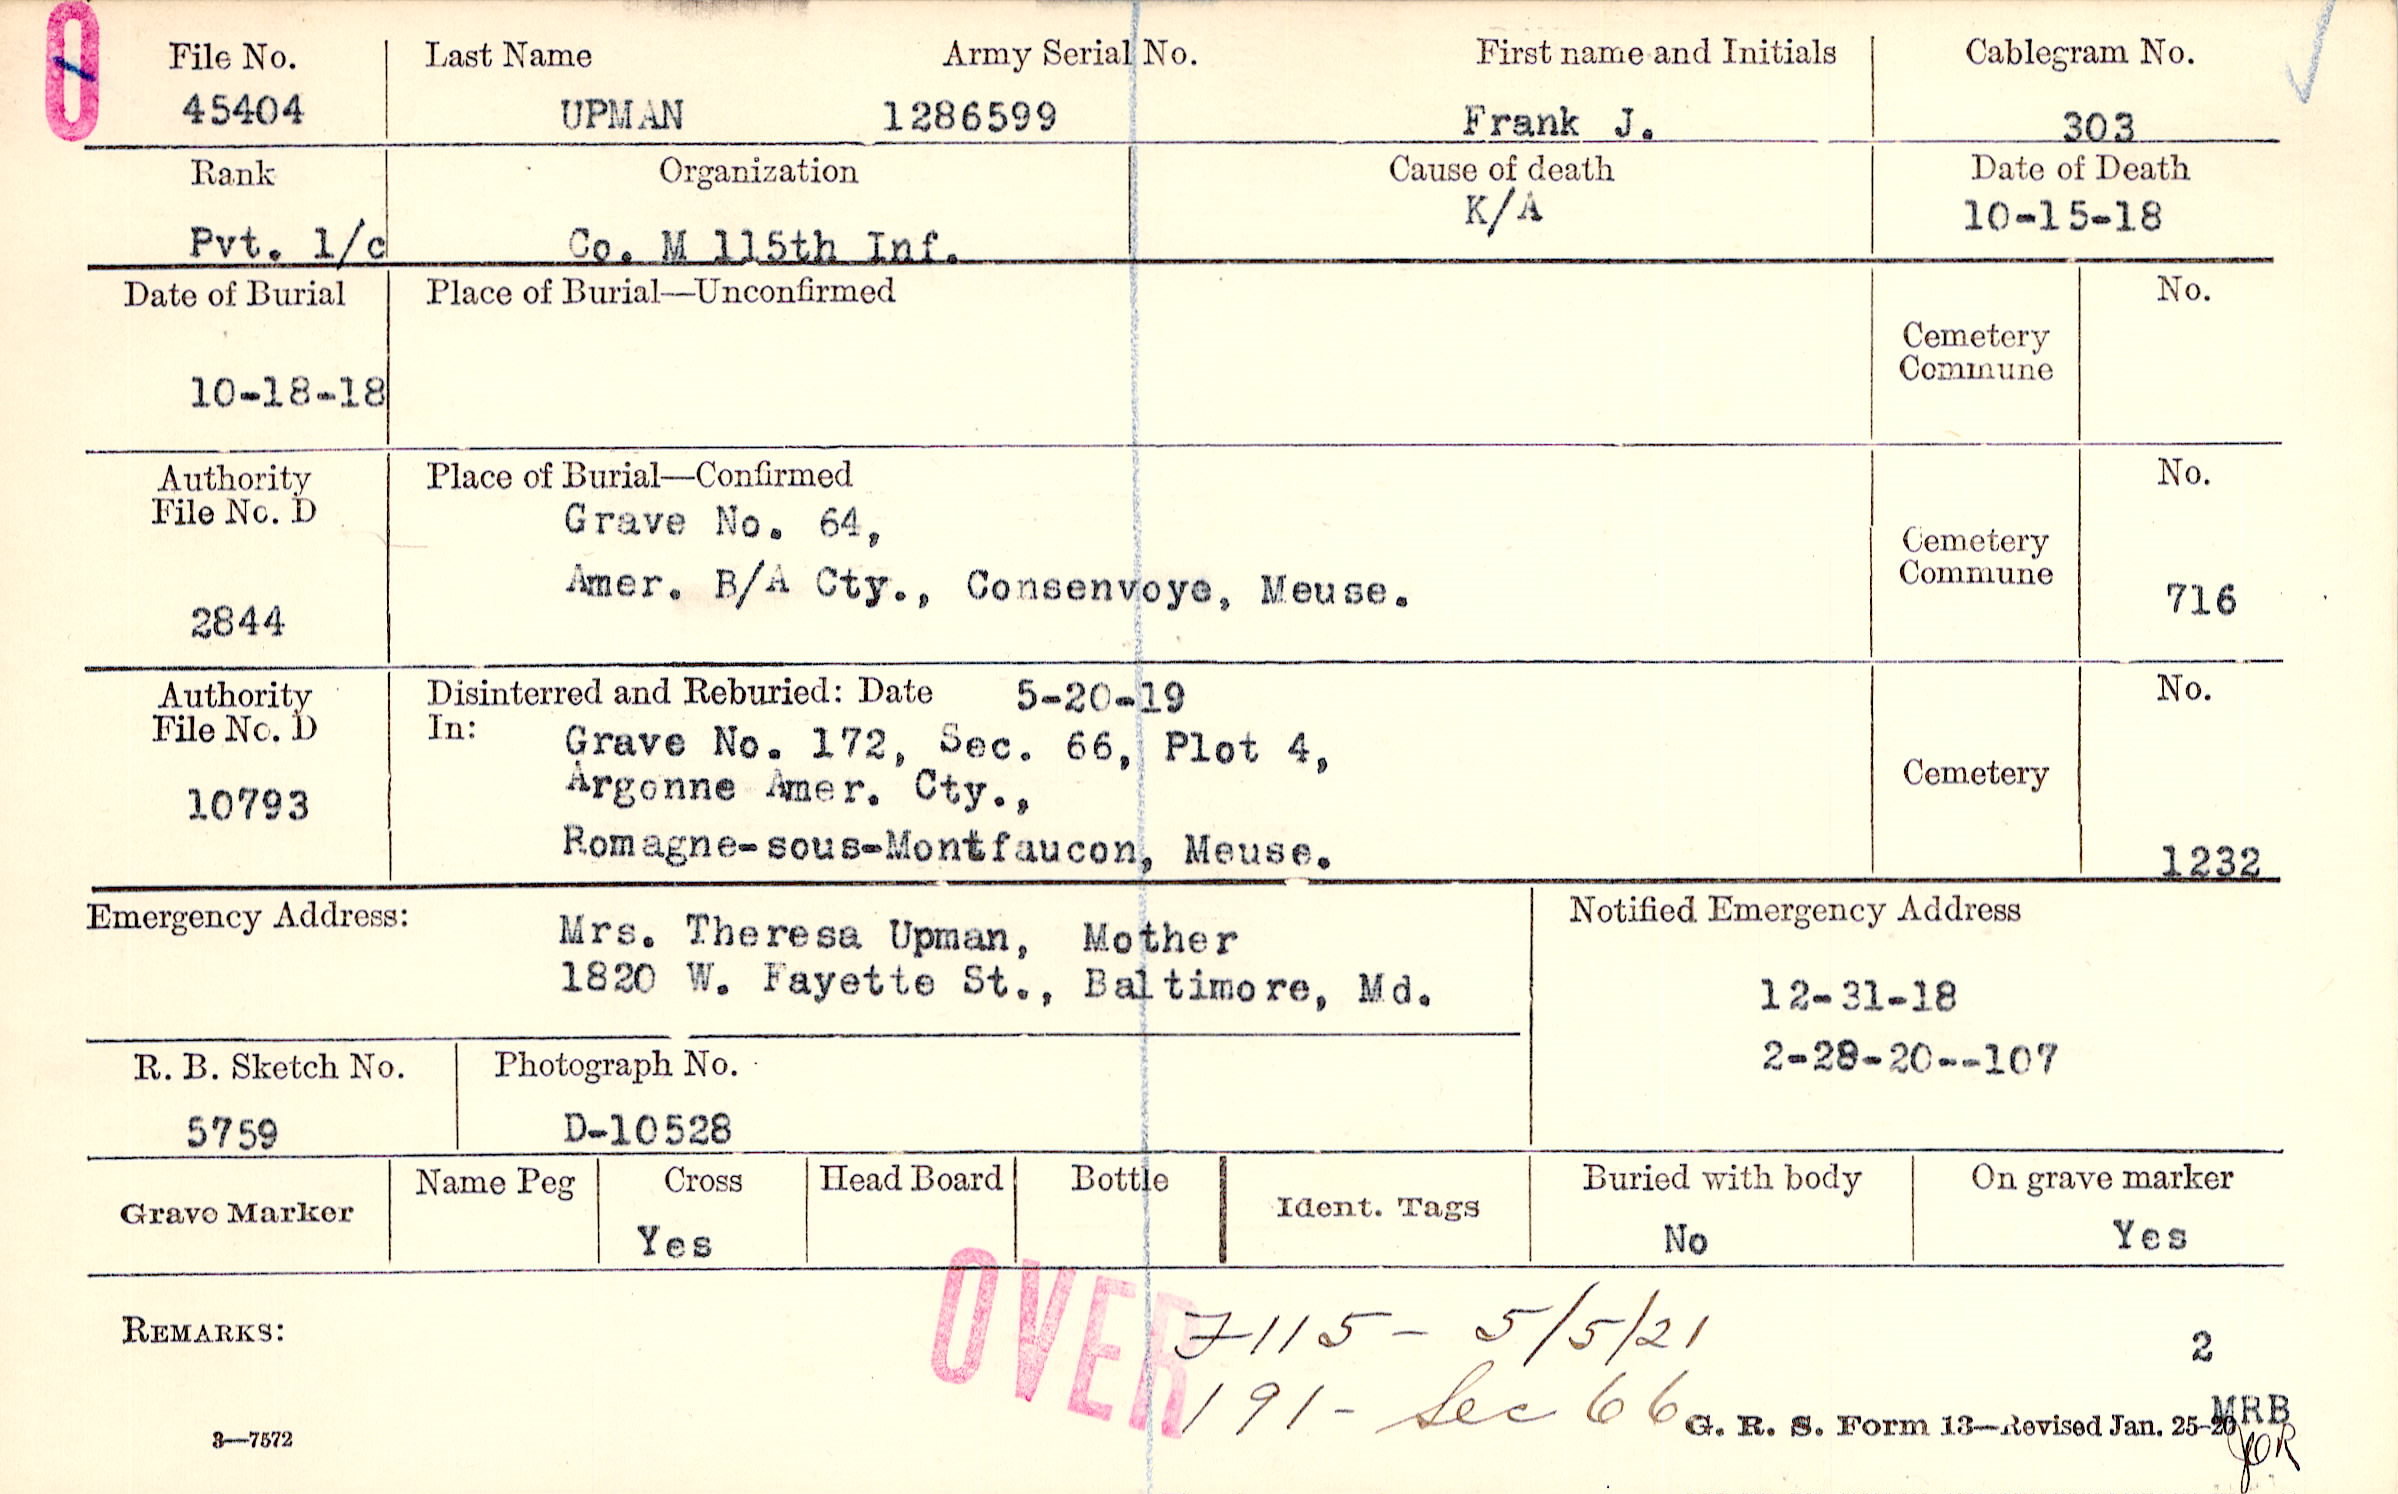 0
File No. Last Name Army Serial No. First name and Initials Cablegram No.
45404 UPMAN 1286599 Frank J. 303
Rank Organization Cause of death Date of Death
Pvt. 1/c Co. M 115th Inf. K/A 10-15-18
Date of Burial Place of Burial—Unconfirmed No.
Cemetery
Commune
10-18-18
Authority Place of Burial—Confirmed No.
File No. D
Grave No. 64,
Cemetery
Commune
Amer. B/A Cty., Consenvoye, Meuse. 716
2844
Authority Disinterred and Reburied: Date 5-20-19 No.
File No. D In: Grave No. 172, Sec. 66, Plot 4,
Argonne Amer. Cty., Cemetery
10793
Romagne-sous-Montfaucon, Meuse. 1232
Emergency Address: Mrs. Theresa Upman, Mother Notified Emergency Address
1820 W. Fayette St., Baltimore, Md. 12-31-18
2-28-20--107
R. B. Sketch No. Photograph No.
5759 D-10528
Grave Marker Name Peg Cross Head Board Bottle Ident. Tags Buried with body On grave marker
Yes No Yes
OVER
REMARKS: 7115 - 5/5/21 2
191 - Sec 66
MRB
3—7572 G. R. S. Form 13—Revised Jan. 25-20